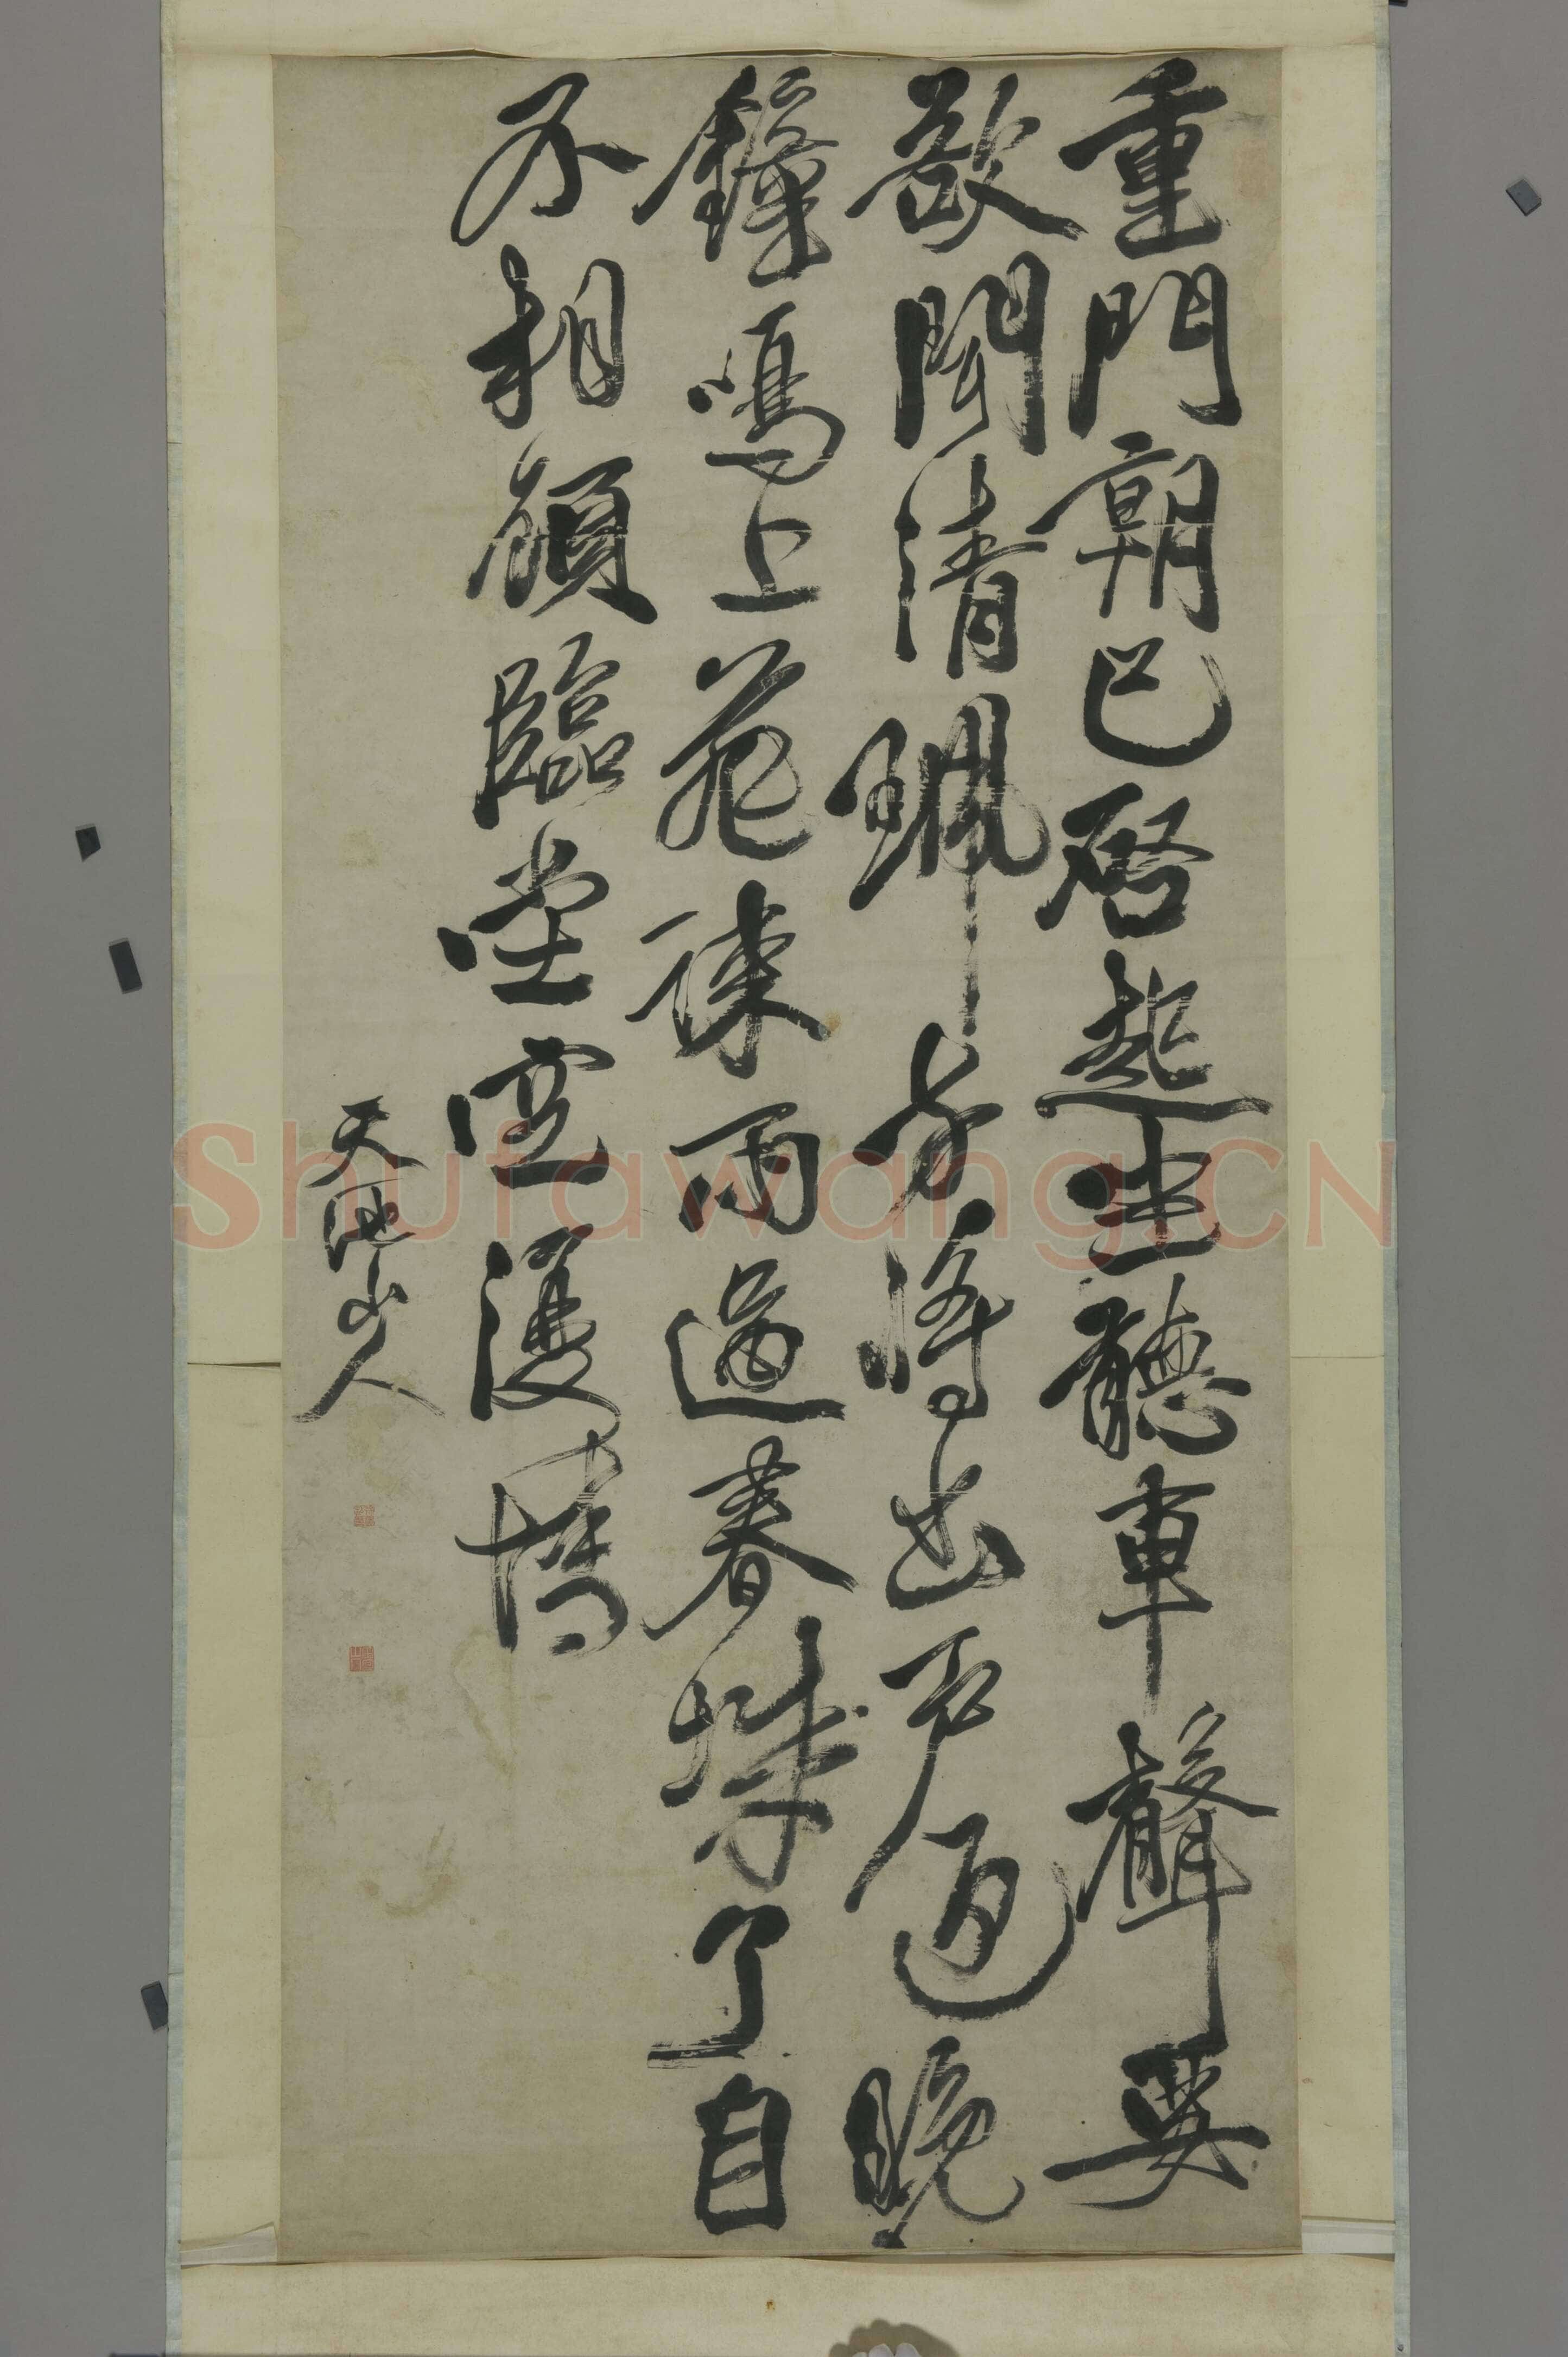 重門朝已啓起坐聽車聲要
欲聞清珮方將出戶迎晚
鐘鳴上苑疎雨過春城了自
不相顧臨堂空復情
天池山人
Shufawang.CN